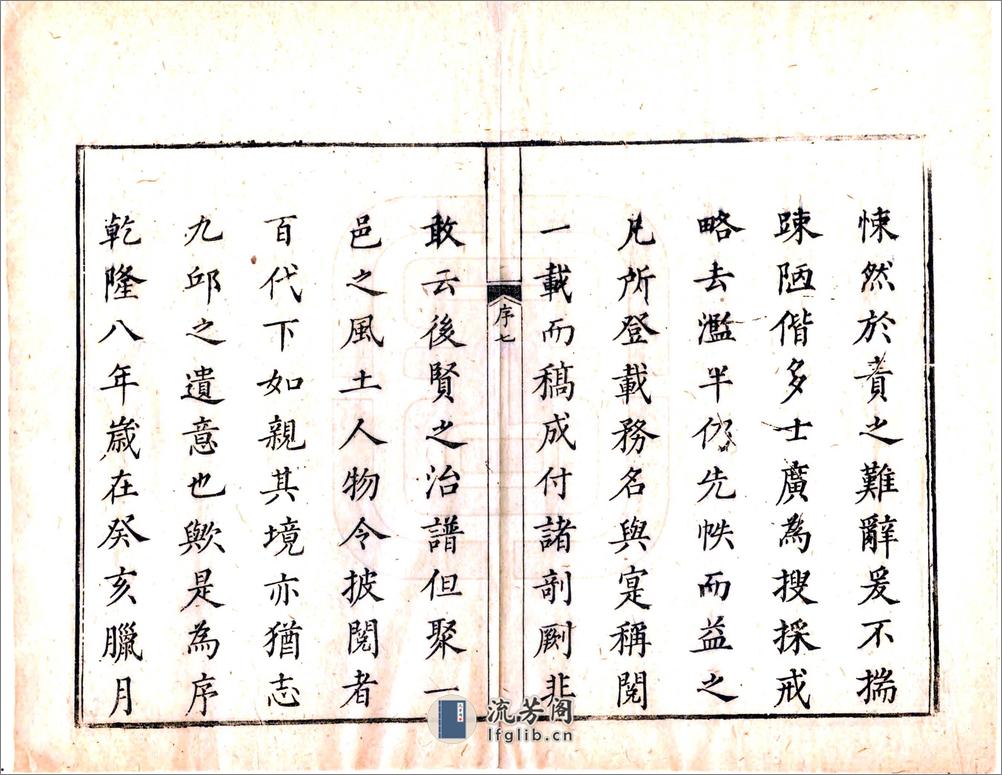 悚然於責之難辭爰不揣
踈陋偕多士廣為搜採戒
略去濫半仍先帙而益之
凡所登載務名與寔稱閱
一載而稿成付諸剞劂非
序七
敢云後賢之治譜但聚一
邑之風土人物令披閱者
百代下如親其境亦猶志
九邱之遺意也歟是為序
乾隆八年歲在癸亥臘月
流芳阁
lfglib.cn